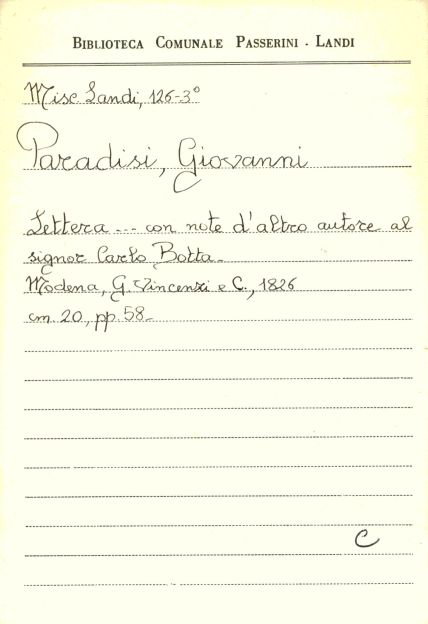 BIBLIOTECA COMUNALE PASSERINI - LANDI
Misc Landi, 126-3°
Paradisi, Giovanni
Lettera --- con note d'altro autore al
signor Carlo Botta.
Modena, G. Vincenzi e C., 1826
cm. 20, pp. 58.
C